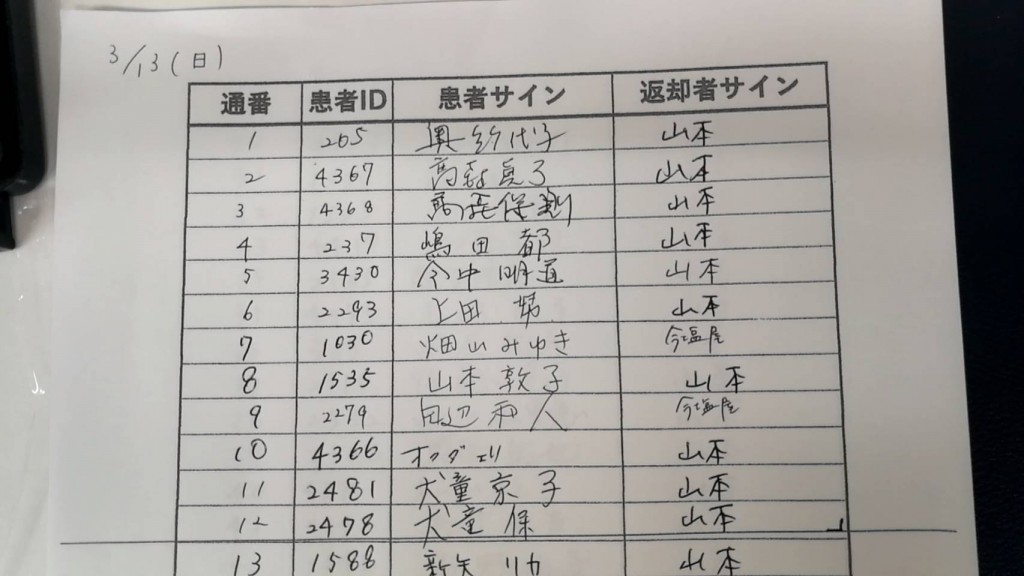 3/13(日)
通番 患者ID 患者サイン 返却者サイン
1 265 奥紗代子 山本
2 4367 高森貞子 山本
3 4368 高森保 山本
4 237 嶋田都 山本
5 3430 今中明道 山本
6 2293 上田 山本
7 1030 畑山みゆき 今塩屋
8 1535 山本敦子 山本
9 2279 田辺和人 今塩屋
10 4366 山本
11 2481 犬童京子 山本
12 2478 犬童保 山本
13 1588 新矢リカ 山本